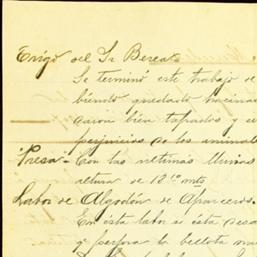 Trigo del Sr Bereal
Se terminó este trabajo de
biendo quedado hacina
caron bien tapados y
perjuicios de los animale
"Presa"- Con las últimas lluvias
altura de 12.10 mts
Labor de Algodón de Aparceros.
En esta labor si está pesa
y perfora la bellota